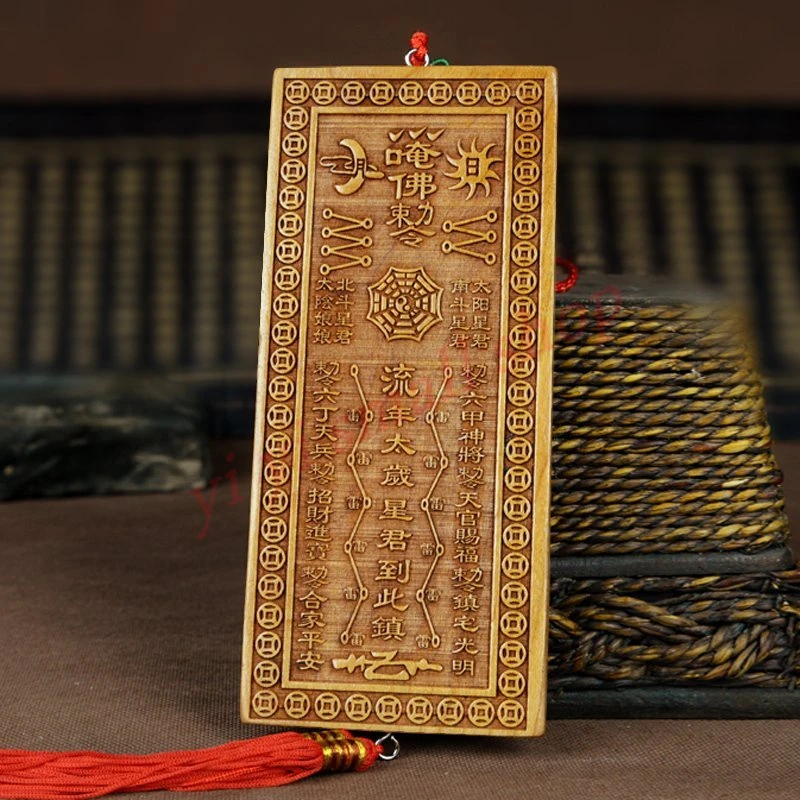 唵佛勅令
日
月
太阳星君
南斗星君
北斗星君
太陰娘娘
勅令六甲神將勅令天官賜福勅令鎮宅光明
雷雷雷雷雷
流年太歲星君到此鎮
雷雷雷雷雷
勅令六丁天兵勅令招財進寶勅令合家平安